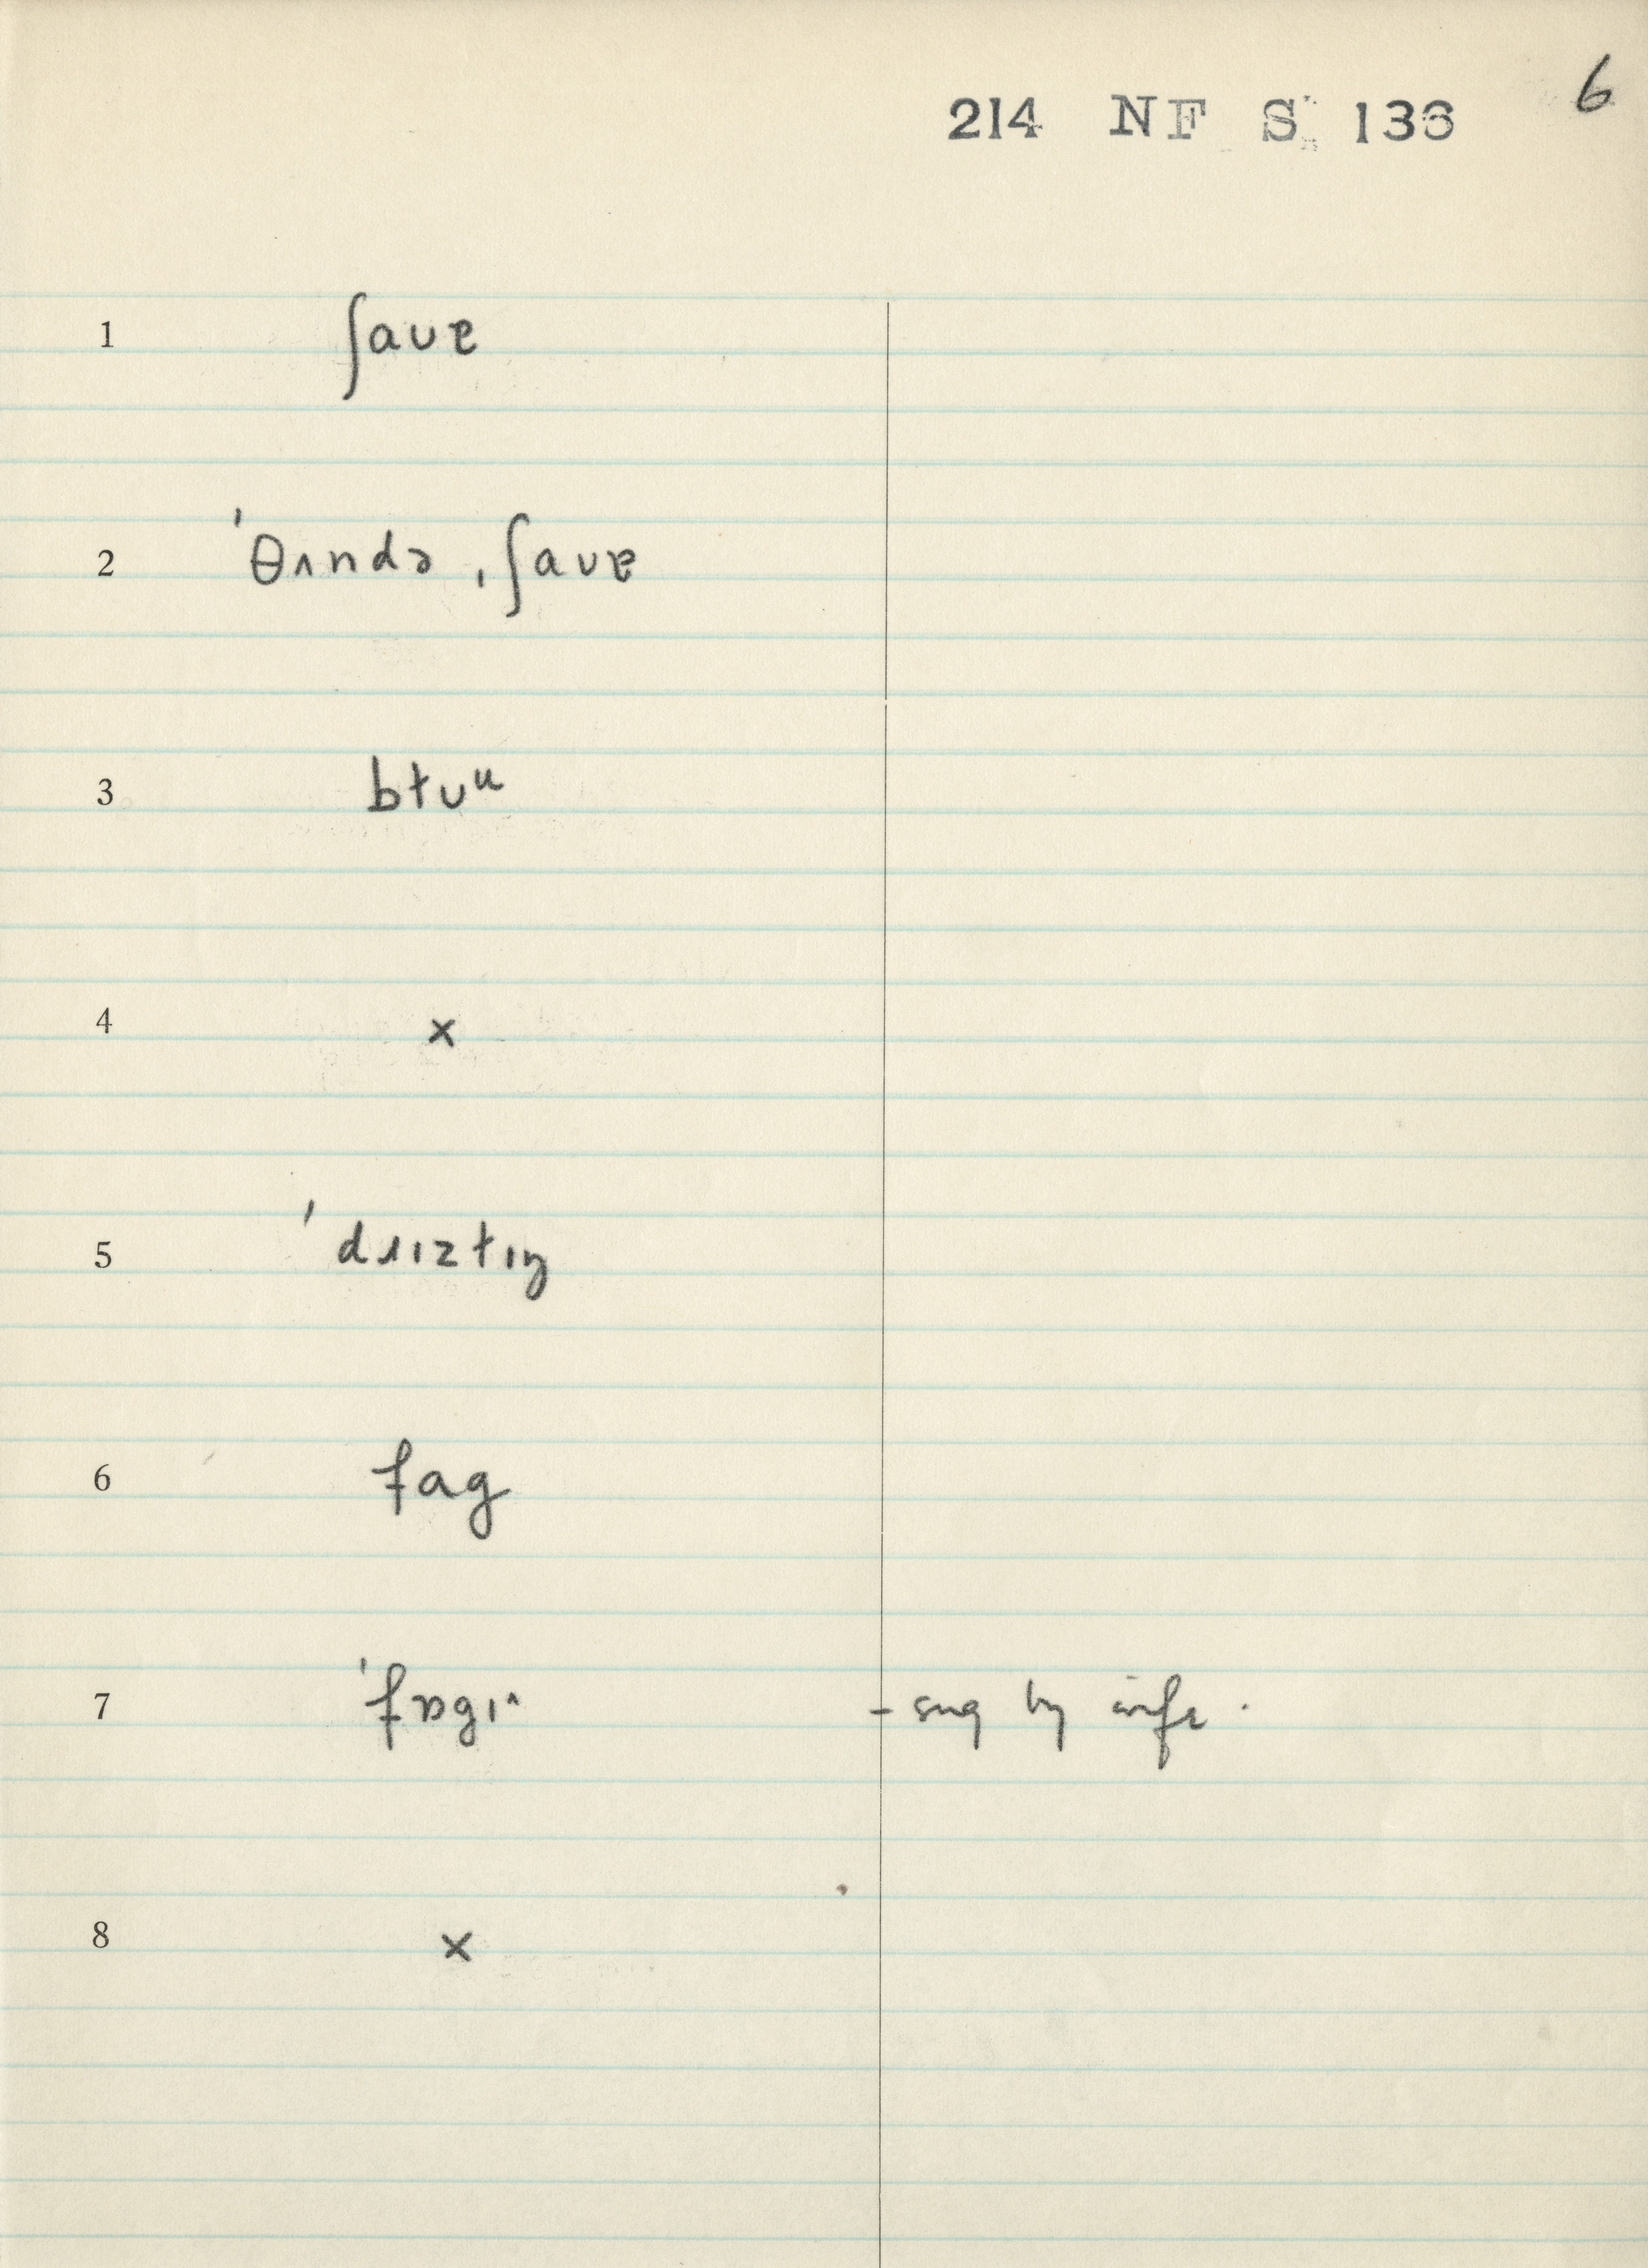 214 NF S 136 6
1 ʃaʊɐ
2 ˈθʌndə ˌʃaʊɐ
3 bɫʊᵘ
4 x
5 ˈdɹɪzɫɪŋ
6 fag
7 ˈfɒgɪ^ - sug by wife.
8 x